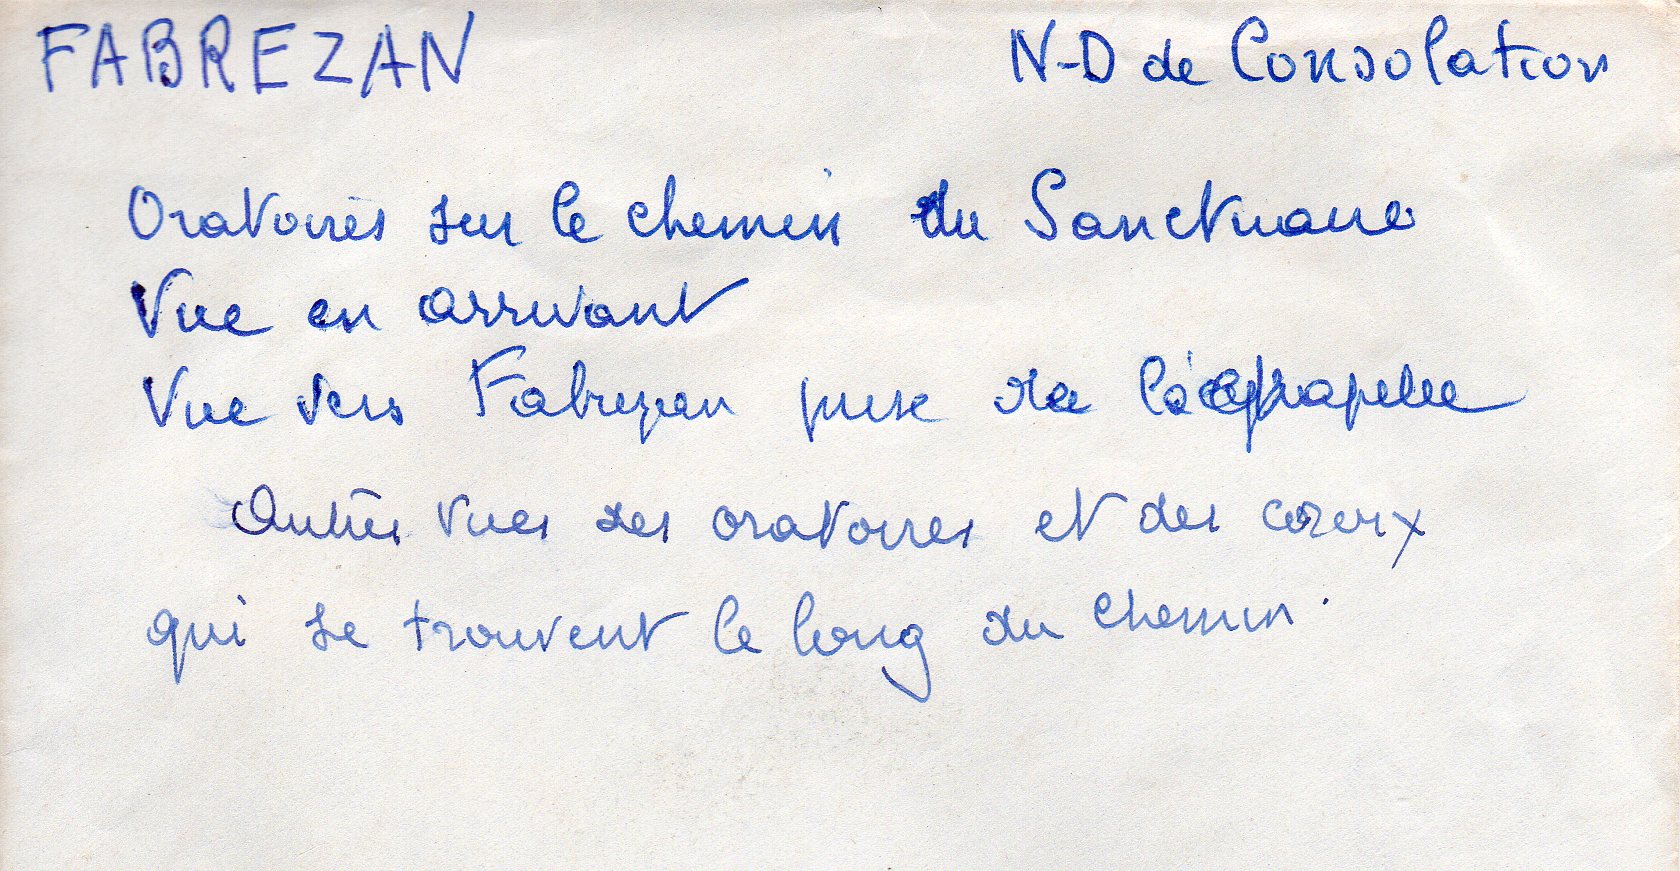 FABREZAN N-D de Consolation
Oratoires sur le chemin du Sanctuaire
Vue en arrivant
Vue vers Fabrezan prise de la chapelle
Autres vues des oratoires et des croix
qui se trouvent le long du chemin.